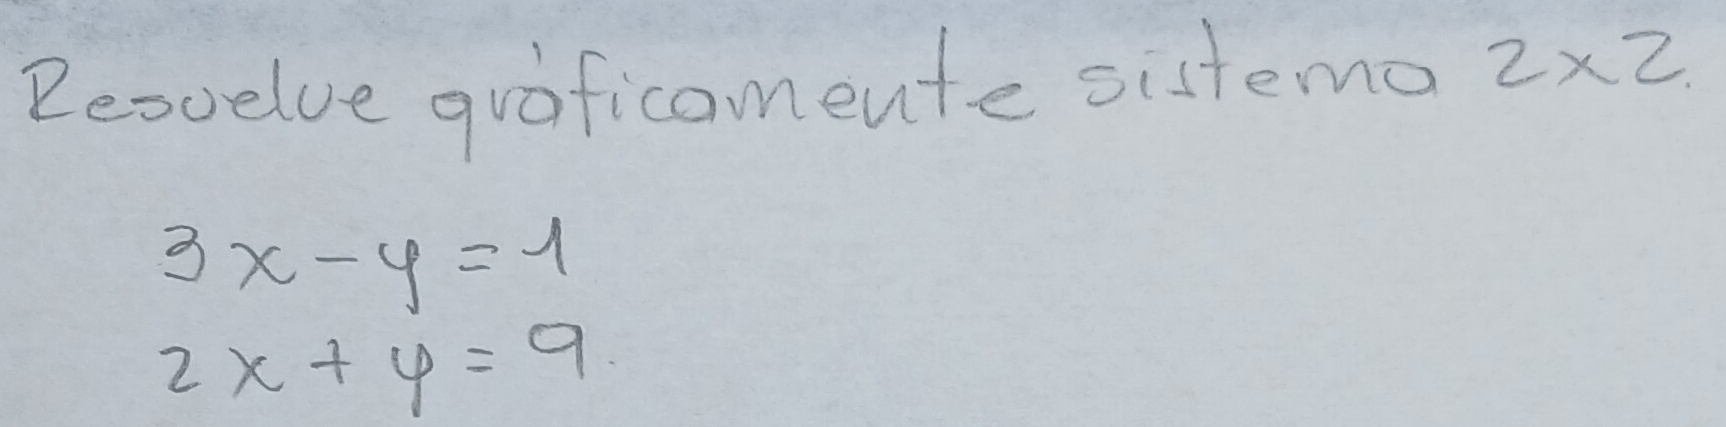 Resuelve gráficamente sistema 2x2.
3x-y=1
2x+y=9.